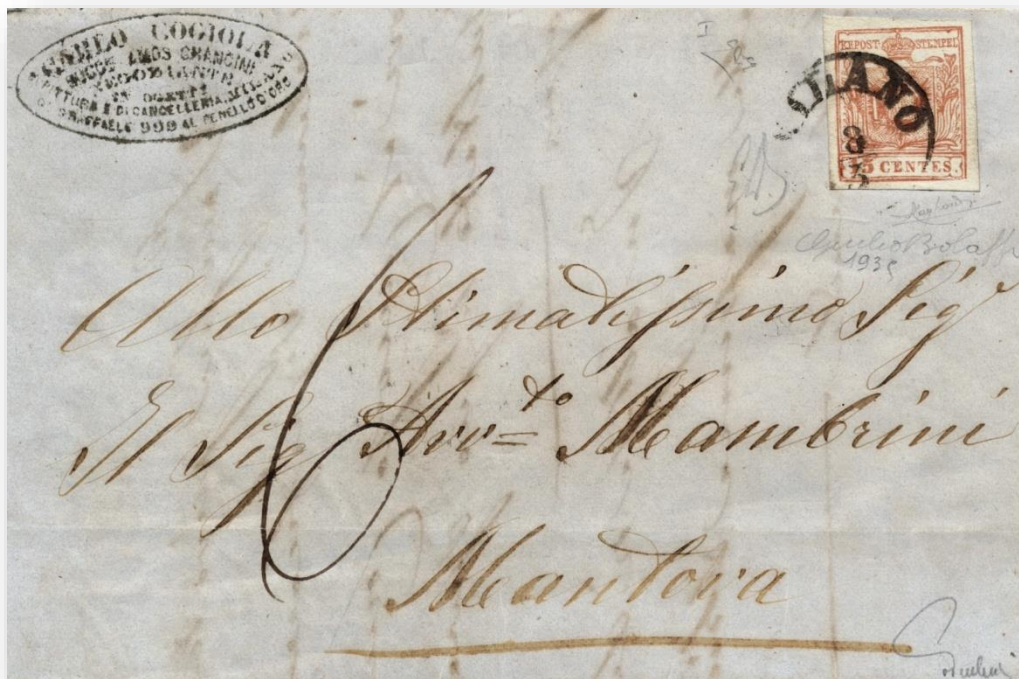 CARLO COGIOLA
SUCCE. AMOS GRANCINI
NEGOZIANTE
IN OGETTI
PITTURA E DI CANCELLERIA, MILANO
S. RAFFAELE 999 AL PENELLO D'ORO
KKPOST-STEMPEL
15 CENTES.
MILANO
8
5
Giulio Bolaffi
1935
6
Allo Stimatissimo Sig.
Il Sig. Avv.to Mambrini
Mantova